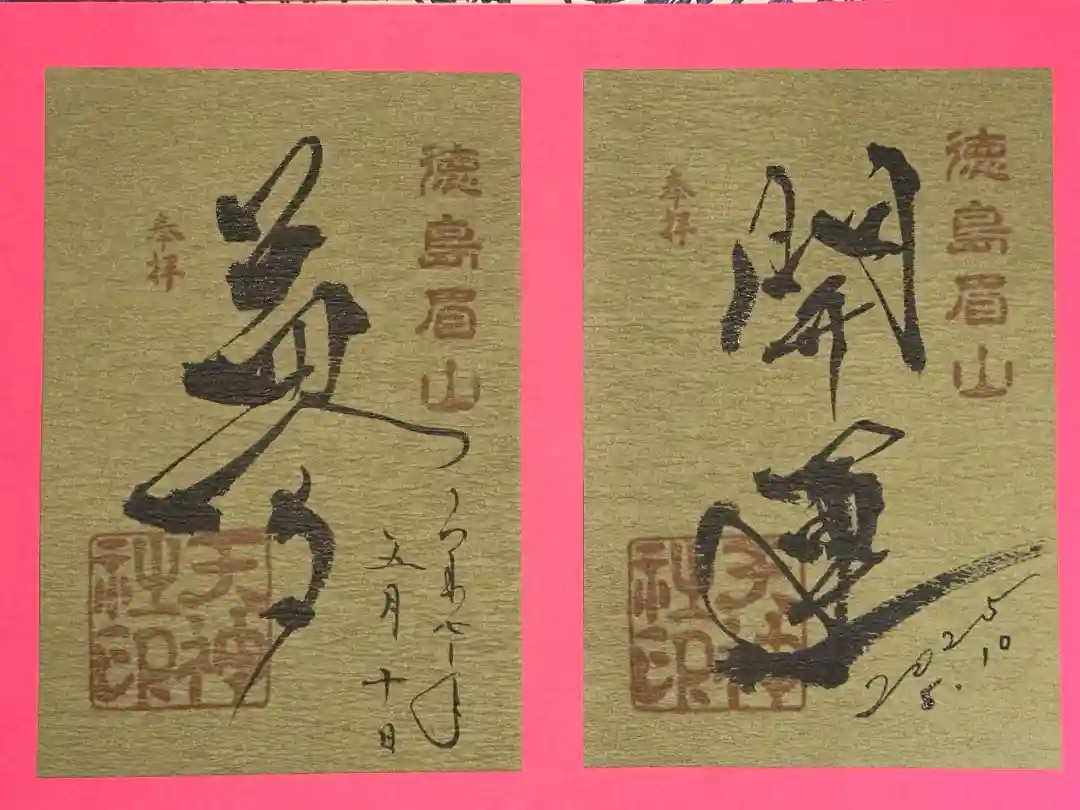 徳島眉山
奉拝
令和七年
五月十日
天神社印
徳島眉山
開運
奉拝
天神社印
2025
5.10